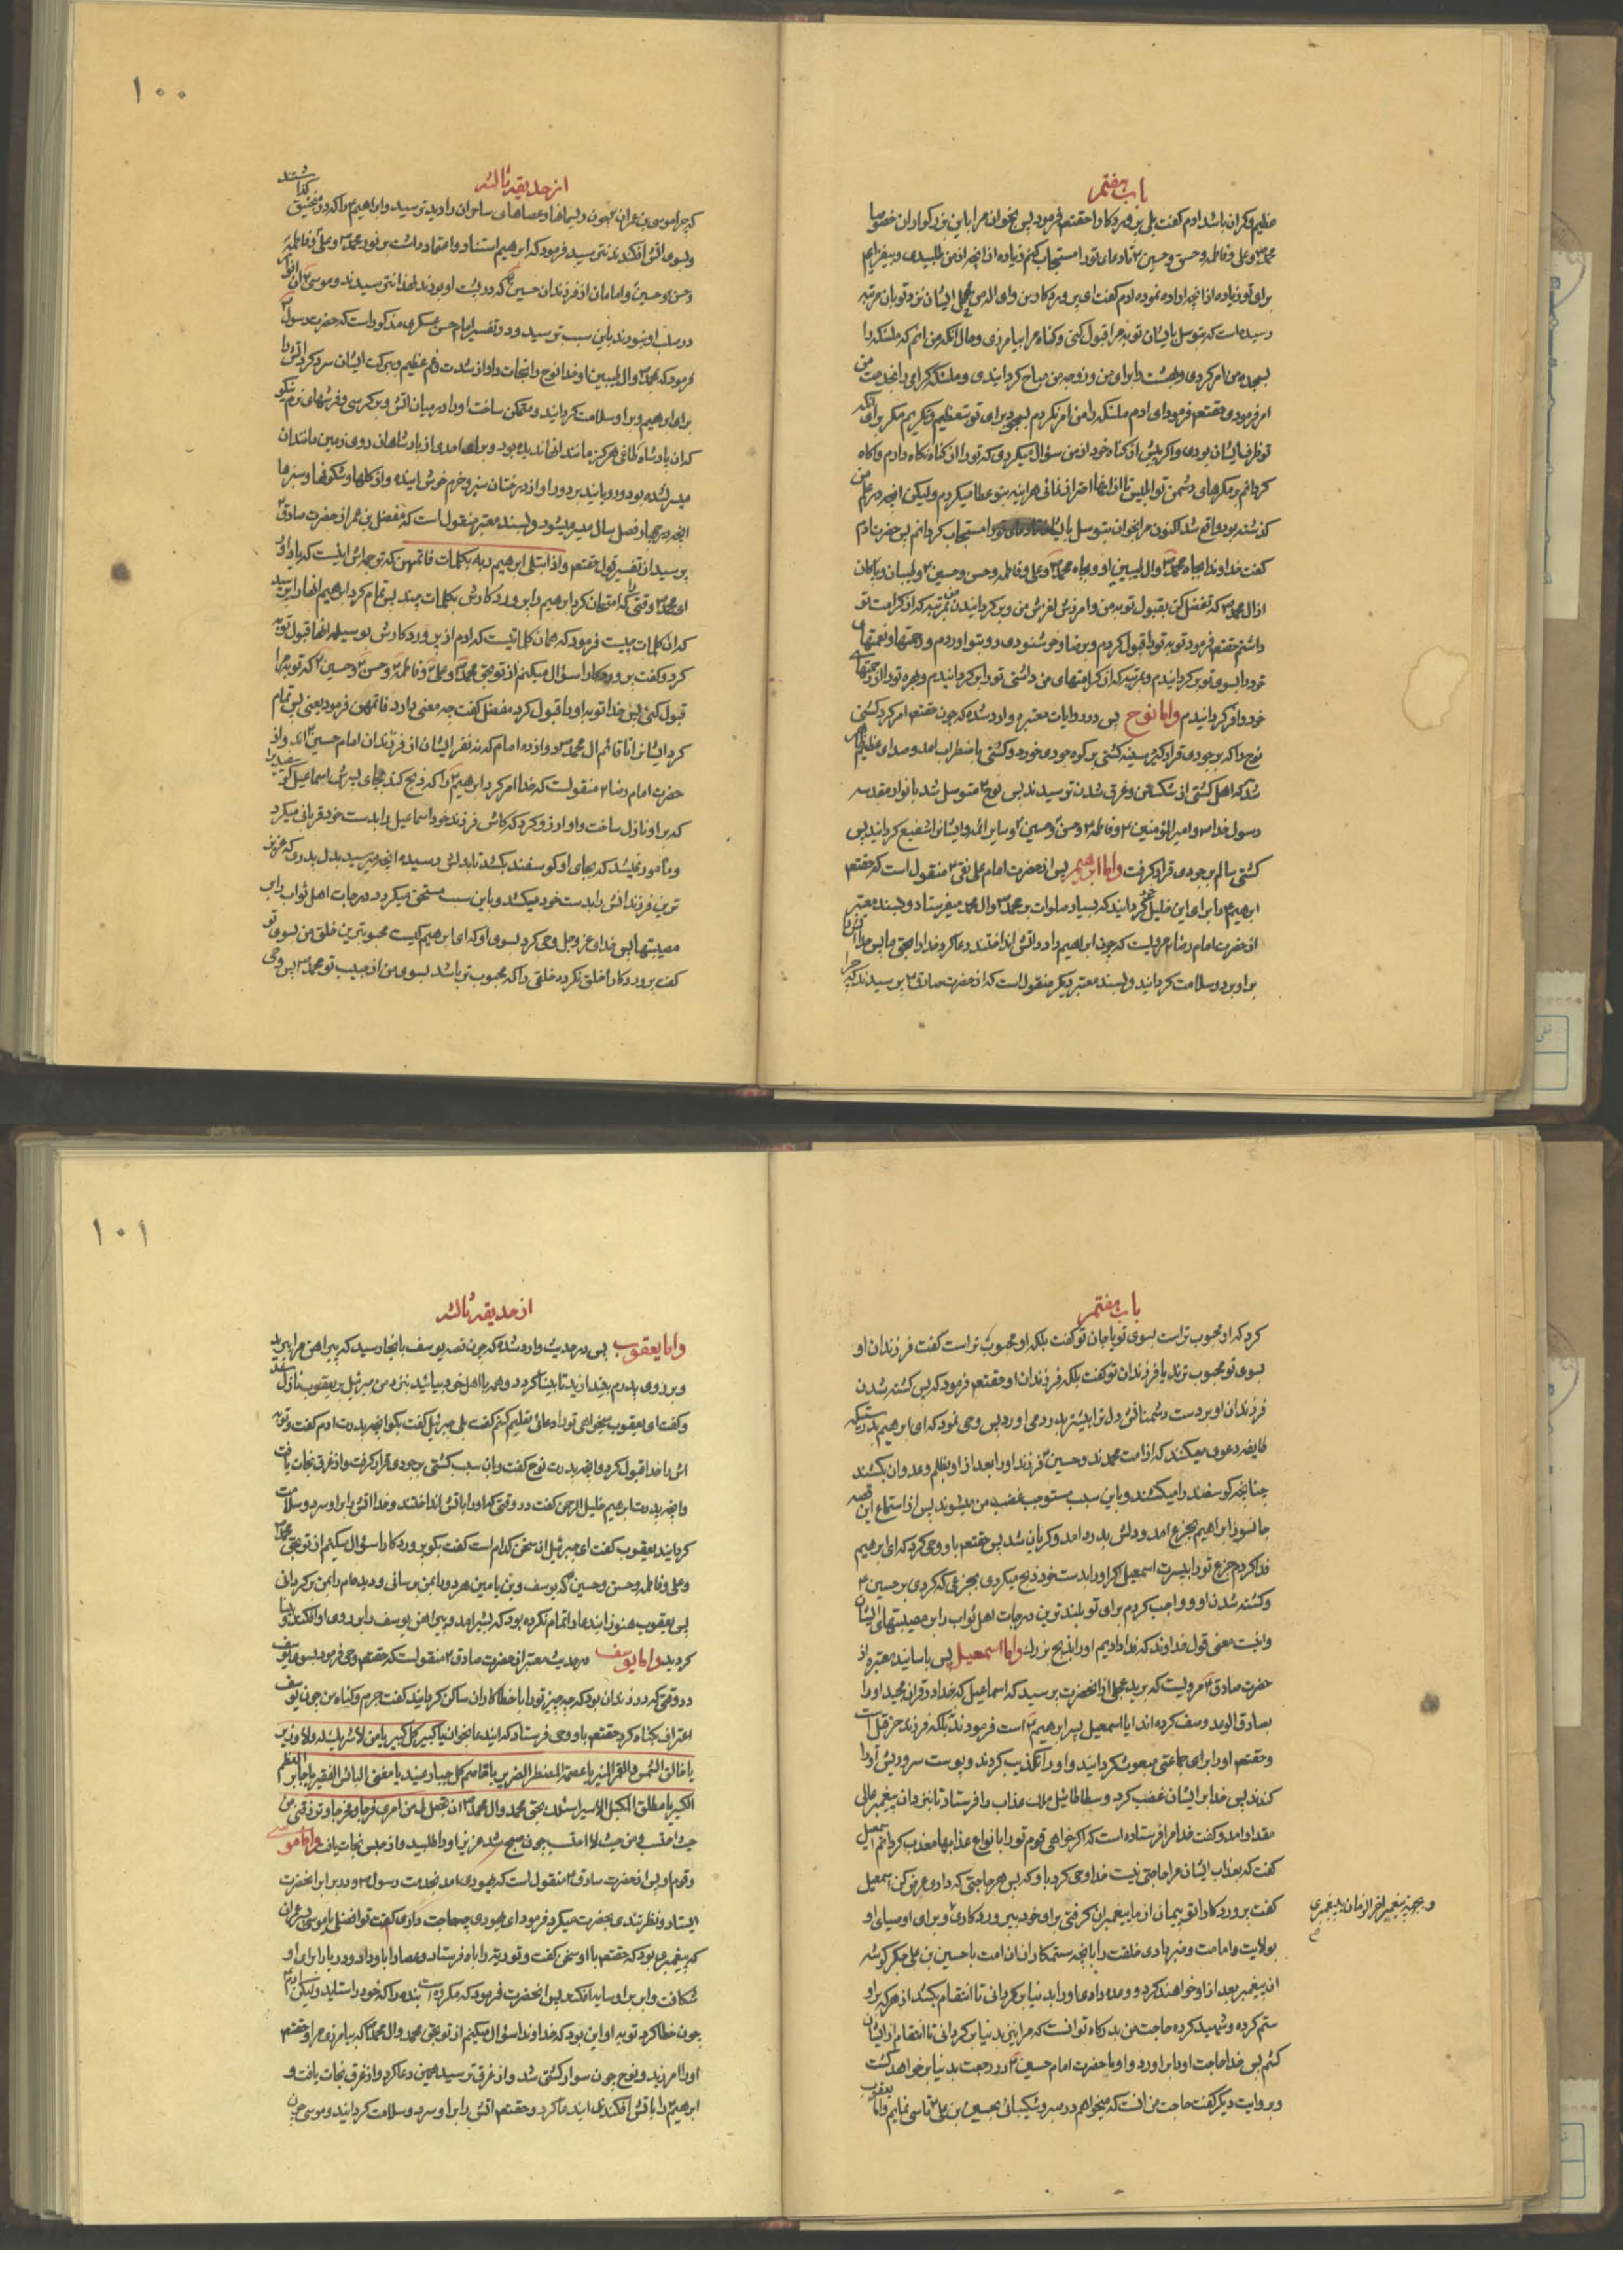 باب هفتم
عظیم و کران باشد ادم کفت بلی پروردکارا حقتعم فرمود پس بخوان مرا باین بزرکواران خصوصا
محمد و علی و فاطمه و حسن و حسین تا دعای تو را مستجاب کنم زیاده از انچه از من طلبیدی و بیفزایم
برای تو زیاده از انچه اراده نموده ادم کفت ای پروردکار من و ای اله من محل ایشان نزد تو بان مرتبه
رسیده است که بتوسل بایشان توبه مرا قبول کنی و کناه مرا بیامرزی و حال انکه من انم که ملئکه را
بسجده من امر کردی و بهشت را برای من و زوجه من مباح کردانیدی و ملئکه کرامی را بخدمت من
امر فرمودی حقتعم فرمود ای ادم ملئکه را من امر نکردم بسجده برای تو بتعظیم و تکریم مکر برای انکه
تو ظرف ایشان بودی و اکر پیش از کناه خود از من سؤال میکردی که تو را از کناه نکاه دارم و اکاه
کردانم بر مکرهای دشمن تو ابلیس تا از انها احتراز نمائی هراینه بتو عطا میکردم ولیکن انچه در علم من
کذشته بود واقع شد اکنون مرا بخوان بتوسل بایشان تا دعای تو را مستجاب کردانم پس حضرت ادم
کفت خداوندا بجاه محمد و ال طیبین او و بجاه محمد و علی و فاطمه و حسن و حسین و طیبان و پاکان
از ال محمد که تفضل کن بقبول توبه من و امرزش لغزش من و برکردانیدن من بمرتبه که از کرامت تو
داشتم حقتعم فرمود توبه تو را قبول کردم و برضا و خوشنودی رو بتو اوردم و رحمتها و نعمتهای
خود را بسوی تو برکردانیدم و بمرتبه که از کرامتهای من داشتی تو را برکردانیدم و بهره تو را از رحمتهای
خود وافر کردانیدم و اما نوح پس در روایات معتبره وارد شده که چون حقتعم امر کرد کشتی
نوح را که بر جودی قرار کیرد سینه کشتی بر کوه جودی خورد و کشتی باضطراب امد و صدای عظیم ظاهر
شد که اهل کشتی از شکستن و غرق شدن ترسیدند پس نوح متوسل شد بانوار مقدسه
رسول خدا و امیر المؤمنین و فاطمه و حسن و حسین و سایر ائمه و ایشانرا شفیع کردانید پس
کشتی سالم بر جودی قرار کرفت و اما ابرهیم پس از حضرت امام علی نقی منقول است که حقتعم
ابرهیم را برای این خلیل خود کردانید که بسیار صلوات بر محمد و ال محمد میفرستاد و بسند معتبر
از حضرت امام رضا مرویست که چون ابراهیم را در اتش انداختند دعا کرد خدا را بحق ما پس خدا اتش را
بر او برد و سلامت کردانید و بسند معتبر دیکر منقول است که از حضرت صادق پرسیدند که چرا
۱۰۰
از حدیقه ثالثه
که چرا موسی بن عمران چون ریسمانها و عصاهای ساحران را دید ترسید و ابراهیم را که در منجنیق کذاشتند
و بسوی اتش افکندند نترسید فرمود که ابرهیم استناد و اعتماد داشت بر نور محمد و علی و فاطمه
و حسن و حسین و امامان از فرزندان حسین که در پشت او بودند لهذا نترسید و موسی ان انوار
در صلب او نبودند باین سبب ترسید و در تفسیر امام حسن عسکری مذکور است که حضرت رسول
فرمود که بمحمد و ال طیبین او خدا نوح را نجات داد از شدت غم عظیم و ببرکت ایشان سرد کرد اتش را
برای ابرهیم و بر او سلامت کردانید و متمکن ساخت او را در میان اتش و بر کرسی و فرشهای نرم نیکو
که ان پادشاه طاغی هرکز مانند انها ندیده بود و برای احدی از پادشاهان روی زمین مانند ان
میسر نشده بود و رویانید بر دور او از درختان سبز و خرم خوش ایند و از کلها و شکوفها و سبزها
انچه در چهار فصل سال میسر میشود و بسند معتبر منقول است که مفضل بن عمر از حضرت صادق
پرسید از تفسیر قول حقتعم و اذ ابتلی ابرهیم ربه بکلمات فاتمهن که ترجمه اش اینست که یاد اور
ای محمد وقتی را که امتحان کرد ابرهیم را پروردکارش بکلمات چند پس تمام کرد ابرهیم انها را پرسید
که ان کلمات چیست فرمود که همان کلماتیست که ادم از پروردکارش بوسیله انها قبول توبه
کرد و کفت پروردکارا سؤال میکنم از تو بحق محمد و علی و فاطمه و حسن و حسین که توبه مرا
قبول کنی پس خدا توبه او را قبول کرد مفضل کفت چه معنی دارد فاتمهن فرمود یعنی پس تمام
کرد ایشانرا تا قائم ال محمد دوازده امام که نه نفر ایشان از فرزندان امام حسین اند و از
حضرت امام رضا منقولست که خدا امر کرد ابرهیم را که ذبح کند بجای پسرش اسماعیل کوسفندیرا
که بر او نازل ساخت و او ارزو کرد که کاش فرزند خود اسماعیل را بدست خود قربانی میکرد
و مامور نمیشد که بجای او کوسفند بکشد تا بدل او رسیده انچه میرسید بدل پدری که عزیز
ترین فرزندانش را بدست خود میکشد و باین سبب مستحق میکردد درجات اهل ثواب را بر
مصیبتها پس خدای عز و جل وحی کرد بسوی او که ای ابرهیم کیست محبوبترین خلق من بسوی تو
کفت پروردکارا خلق نکرده خلقی را که محبوب تر باشد بسوی من از حبیب تو محمد پس وحی
باب هفتم
کرد که او محبوب تر است بسوی تو یا جان تو کفت بلکه او محبوب تر است کفت فرزندان او
بسوی تو محبوب ترند یا فرزندان تو کفت بلکه فرزندان او حقتعم فرمود که پس کشته شدن
فرزندان او بر دست دشمنانش دل ترا بیشتر بدرد می اورد پس وحی نمود که ای ابرهیم بدرستیکه
طایفه دعوی میکنند که از امت محمدند و حسین فرزند او را بعد از او بظلم و عدوان بکشند
چنانچه کوسفند را میکشند و باین سبب مستوجب غضب من میشوند پس از استماع این قصه
جانسوز ابراهیم بجزع امد و دلش بدرد امد و کریان شد پس حقتعم باو وحی کرد که ای ابرهیم
فدا کردم جزع تو را بر پسرت اسمعیل اکر او را بدست خود ذبح میکردی بجزعی که کردی بر حسین
و کشته شدن او و واجب کردم برای تو بلند ترین درجات اهل ثواب را بر مصیبتهای ایشان
و اینست معنی قول خداوند که فدا دادیم او را بذبح بزرک و اما اسمعیل پس باسانید معتبره از
حضرت صادق مرویست که برید عجلی از انحضرت پرسید که اسماعیل که خدا در قران مجید او را
بصادق الوعد وصف کرده اند ایا اسمعیل پسر ابرهیم است فرمودند نه بلکه فرزند حزقیل است
و حقتعم او را برای جماعتی مبعوث کردانید و او را تکذیب کردند و پوست سر و ریش او را
کندند پس خدا بر ایشان غضب کرد و سطاطائیل ملک عذاب را فرستاد تا بنزد ان پیغمبر عالی
مقدار امد و کفت خدا مرا فرستاده است که اکر خواهی قوم تو را بانواع عذابها معذب کردانم اسمعیل
کفت که بعذاب ایشان مرا حاجتی نیست خدا وحی کرد باو که پس هر حاجتی که داری عرض کن اسمعیل
کفت پروردکارا تو پیمان از ما پیغمبران کرفتی برای خود بپروردکاری و برای اوصیای او
و بجهة پیغمبر اخر الزمان به پیغمبری
بولایت و امامت و خبر دادی خلقت را بانچه ستمکاران ان امت با حسین بن علی جکر کوشه
ان پیغمبر بعد از او خواهند کرد و وعده داده او را بدنیا برکردانی تا انتقام بکشد از هرکه بر او
ستم کرده و شهید کرده حاجت من بدرکاه تو انست که مرا نیز بدنیا برکردانی تا انتقام از ایشان
کشم پس خدا حاجت او را براورد و او با حضرت امام حسین در رجعت بدنیا بر خواهد کشت
و بروایت دیکر کفت حاجت من انست که میخواهم در صبر و شکیبائی بحسین بن علی تاسی نمایم و اما یعقوب
۱۰۱
از حدیقه ثالثه
و اما یعقوب پس در حدیث وارد شده که چون قصه یوسف بانجا رسید که پیراهن مرا ببرید
و بر روی پدرم بیندازید تا بینا کردد و همه با اهل خود بیائید بنزد من جبرئیل بر یعقوب نازل شد
و کفت ای یعقوب میخواهی تو را دعائی تعلیم کنم کفت بلی جبرئیل کفت بکو انچه پدرت ادم کفت و توبه
اش را خدا قبول کرد و انچه پدرت نوح کفت و بان سبب کشتی بر جودی قرار کرفت و از غرق نجات یافت
و انچه پدرت ابرهیم خلیل الرحمن کفت در وقتی که او را باتش انداختند و خدا اتش را بر او سرد و سلامت
کردانید یعقوب کفت ای جبرئیل ان سخن کدام است کفت بکو پروردکارا سؤال میکنم از تو بحق محمد
و علی و فاطمه و حسن و حسین که یوسف و بن یامین هر دو را بمن برسانی و دیدهام را بمن برکردانی
پس یعقوب هنوز این دعا را تمام نکرده بود که بشیر امد و پیراهن یوسف را بر روی او افکند و بینا
کردید و اما یوسف در حدیث معتبر از حضرت صادق منقولست که حقتعم وحی فرمود بسوی یوسف
در وقتی که در زندان بود که چه چیز تو را با خطاکاران ساکن کردانید کفت جرم و کناه من چون یوسف
اعتراف بکناه کرد حقتعم باو وحی فرستاد که این دعا بخوان یا کبیر کل کبیر یا من لا شریک له و لا وزیر
یا خالق الشمس و القمر المنیر یا عصمة المضطر الضریر یا قاصم کل جبار عنید یا مغنی البائس الفقیر یا جابر العظم
الکسیر یا مطلق المکبل الاسیر اسئلک بحق محمد و ال محمد ان تجعل لی من امری فرجا و مخرجا و ترزقنی من
حیث احتسب و من حیث لا احتسب چون صبح شد عزیز او را طلبید و از حبس نجات یافت و اما موسی
و قوم او پس از حضرت صادق منقول است که یهودی امد بخدمت رسول و در برابر انحضرت
ایستاد و نظر تندی بحضرت میکرد فرمود ای یهودی چه حاجت داری کفت تو افضلی یا موسی بن عمران
که پیغمبری بود که حقتعم با او سخن کفت و توریة را باو فرستاد و عصا را باو داد و دریا را برای او
شکافت و ابر بر او سایه افکند پس انحضرت فرمود که مکروه است بنده را که خود را ستاید ولیکن ادم
چون خطا کرد توبه او این بود که خداوندا سؤال میکنم از تو بحق محمد و ال محمد که بیامرزی مرا و حقتعم
او را امرزید و نوح چون سوار کشتی شد و از غرق ترسید همین دعا کرد و از غرق نجات یافت و
ابرهیم را باتش افکندند این دعا کرد و حقتعم اتش را بر او سرد و سلامت کردانید و موسی چون